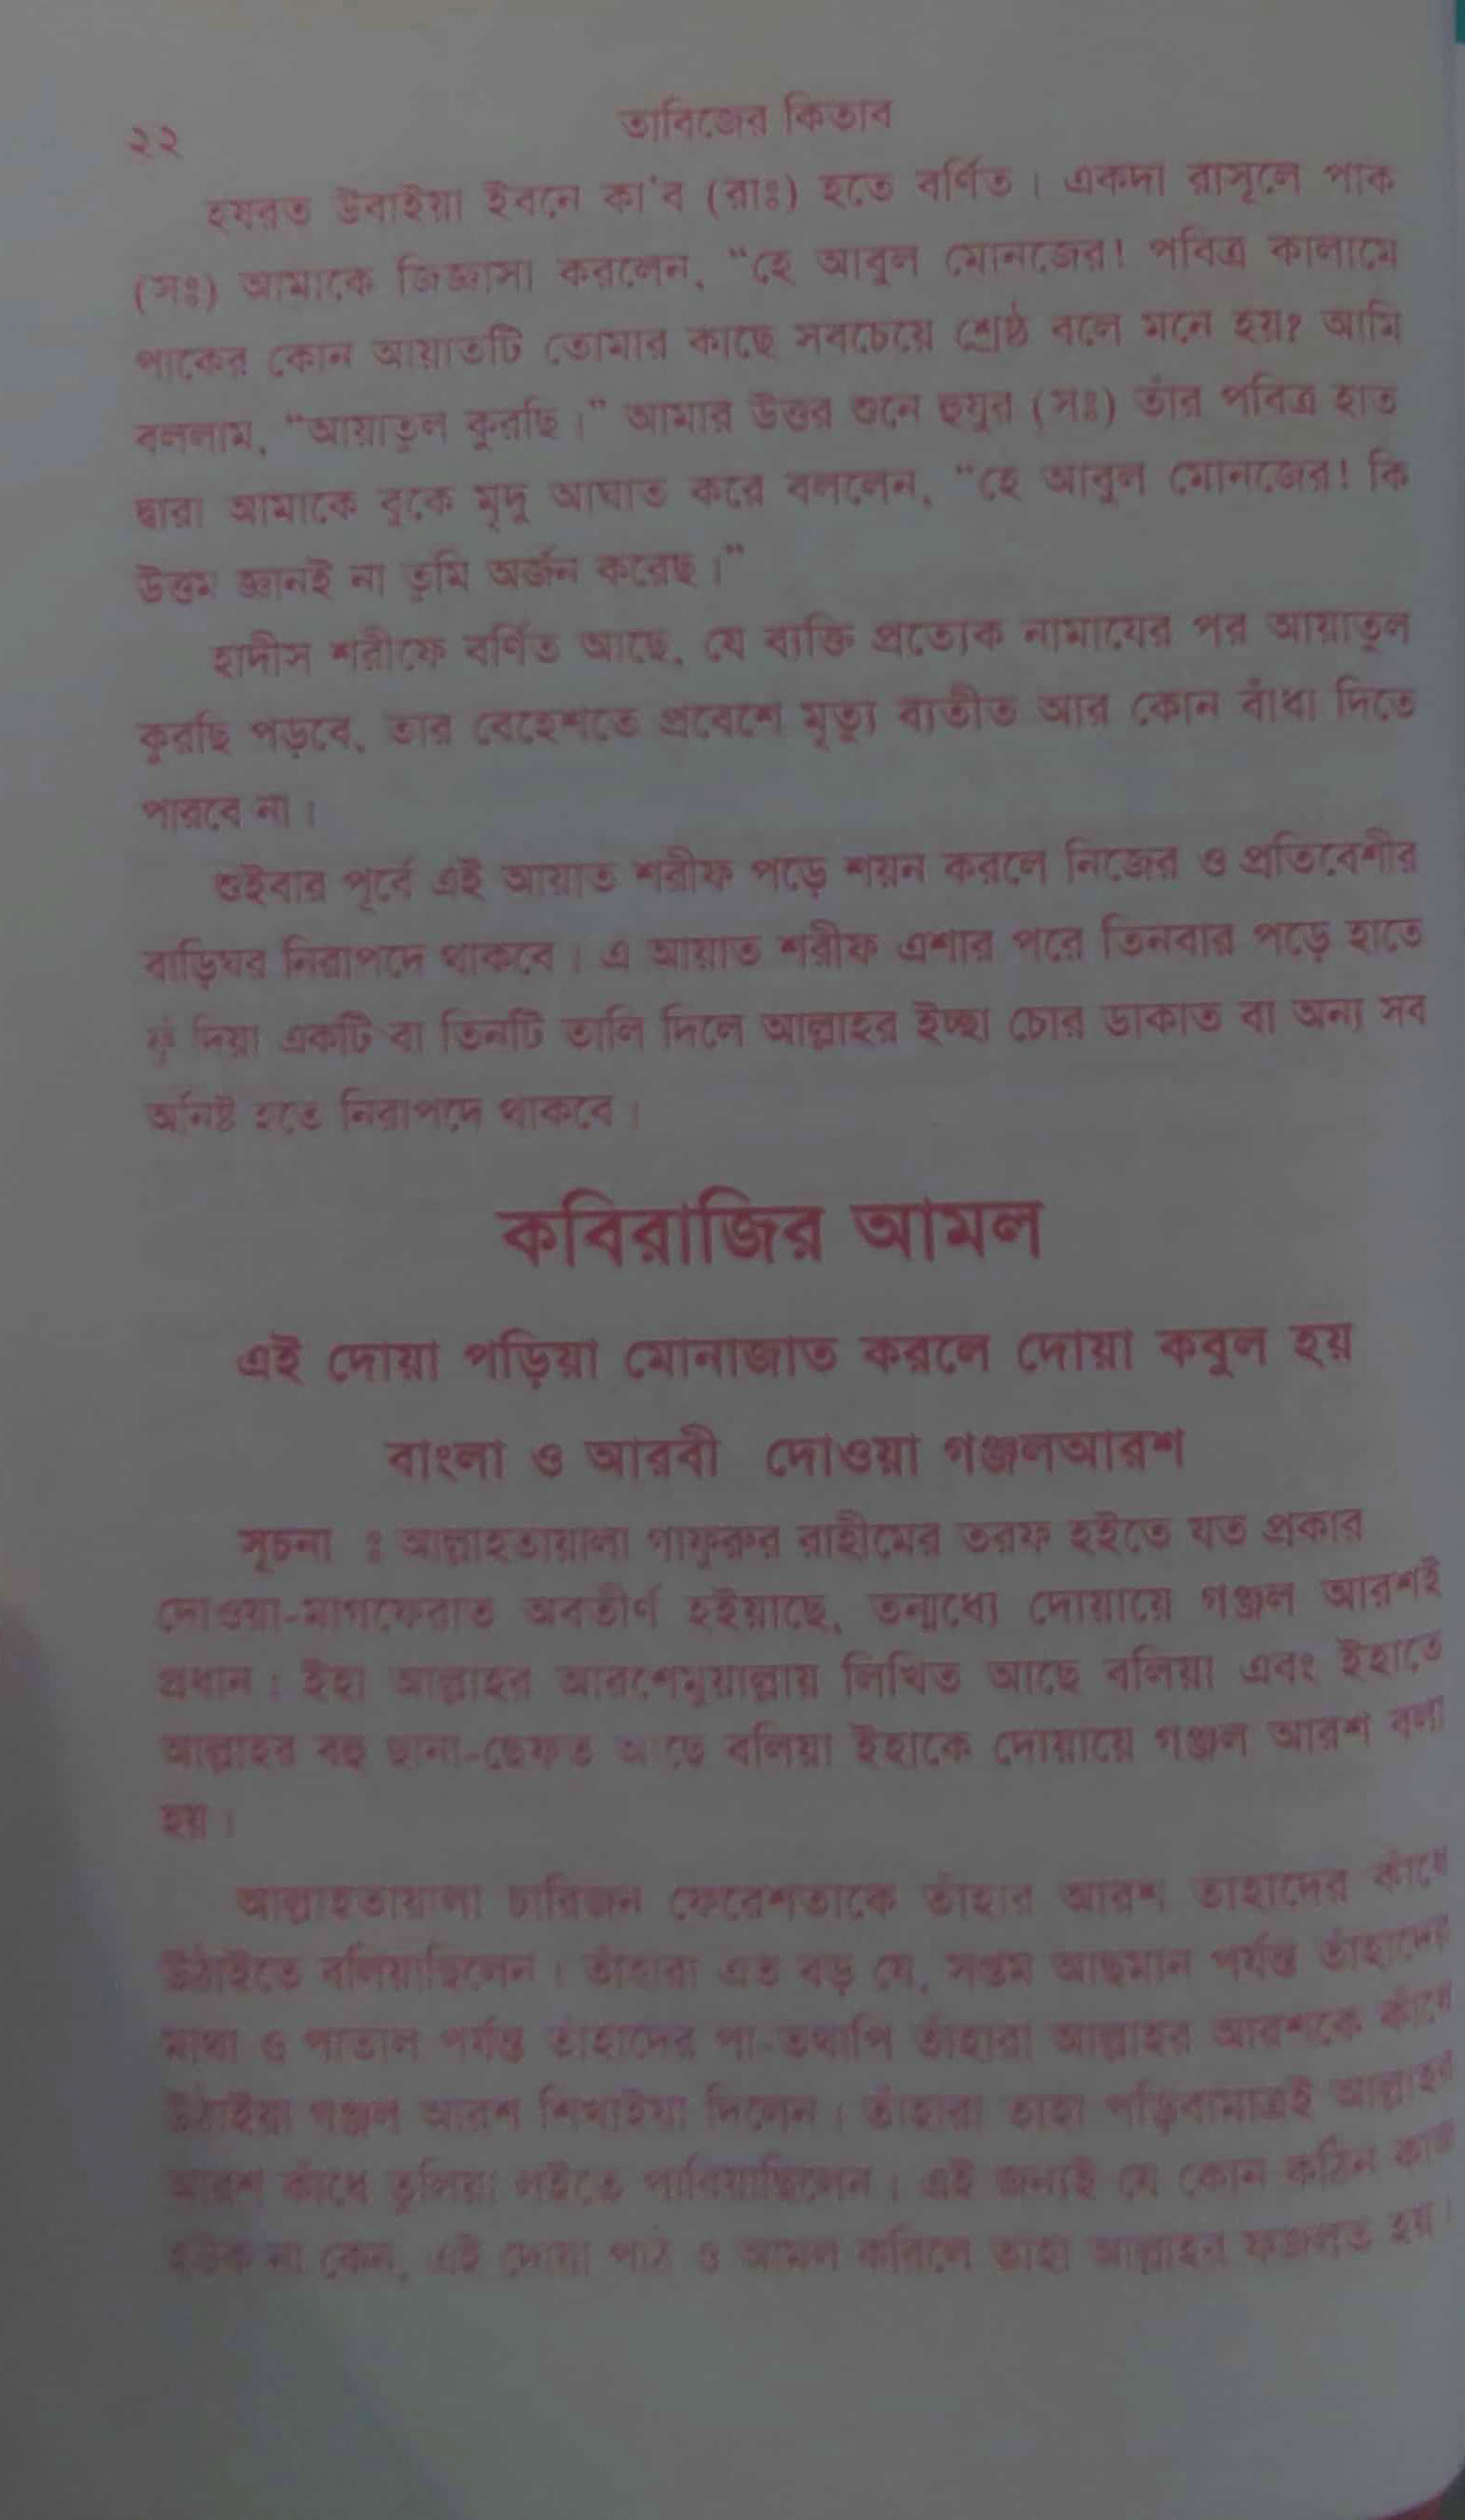 ২২
তাবিজের কিতাব
হযরত উবাইয়া ইবনে কা'ব (রাঃ) হতে বর্ণিত। একদা রাসূলে পাক
(সঃ) আমাকে জিজ্ঞাসা করলেন, “হে আবুল মোনজের! পবিত্র কালামে
পাকের কোন আয়াতটি তোমার কাছে সবচেয়ে শ্রেষ্ঠ বলে মনে হয়? আমি
বললাম, “আয়াতুল কুরছি।” আমার উত্তর শুনে হুযুর (সঃ) তাঁর পবিত্র হাত
দ্বারা আমাকে বুকে মৃদু আঘাত করে বললেন, “হে আবুল মোনজের! কি
উত্তম জ্ঞানই না তুমি অর্জন করেছ।”
হাদীস শরীফে বর্ণিত আছে, যে ব্যক্তি প্রত্যেক নামাযের পর আয়াতুল
কুরছি পড়বে, তার বেহেশতে প্রবেশে মৃত্যু ব্যতীত আর কোন বাঁধা দিতে
পারবে না।
শুইবার পূর্বে এই আয়াত শরীফ পড়ে শয়ন করলে নিজের ও প্রতিবেশীর
বাড়িঘর নিরাপদে থাকবে। এ আয়াত শরীফ এশার পরে তিনবার পড়ে হাতে
ফুঁ দিয়া একটি বা তিনটি তালি দিলে আল্লাহর ইচ্ছা চোর ডাকাত বা অন্য সব
অনিষ্ট হতে নিরাপদে থাকবে।
কবিরাজির আমল
এই দোয়া পড়িয়া মোনাজাত করলে দোয়া কবুল হয়
বাংলা ও আরবী দোওয়া গঞ্জলআরশ
সূচনা ঃ আল্লাহতায়ালা গাফুরুর রাহীমের তরফ হইতে যত প্রকার
দোওয়া-মাগফেরাত অবতীর্ণ হইয়াছে, তন্মধ্যে দোয়ায়ে গঞ্জল আরশই
প্রধান। ইহা আল্লাহর আরশেমুয়াল্লায় লিখিত আছে বলিয়া এবং ইহাতে
আল্লাহর বহু ছানা-ছেফত আছে বলিয়া ইহাকে দোয়ায়ে গঞ্জল আরশ বলা
হয়।
আল্লাহতায়ালা চারিজন ফেরেশতাকে তাঁহার আরশ তাহাদের কাঁধে
উঠাইতে বলিয়াছিলেন। তাঁহারা এত বড় যে, সপ্তম আছমান পর্যন্ত তাঁহাদের
মাথা ও পাতাল পর্যন্ত তাঁহাদের পা-তথাপি তাঁহারা আল্লাহর আরশকে কাঁধে
উঠাইয়া গঞ্জল আরশ শিখাইয়া দিলেন। তাঁহারা তাহা পড়িবামাত্রই আল্লাহর
আরশ কাঁধে তুলিয়া লইতে পারিয়াছিলেন। এই জন্যই যে কোন কঠিন কাজ
হউক না কেন, এই দোয়া পাঠ ও আমল করিলে তাহা আল্লাহর ফজলত হয়।